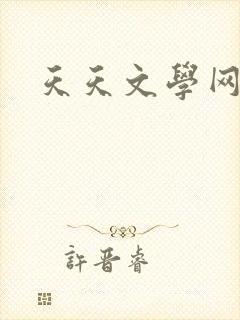 天天文學网
許晋睿